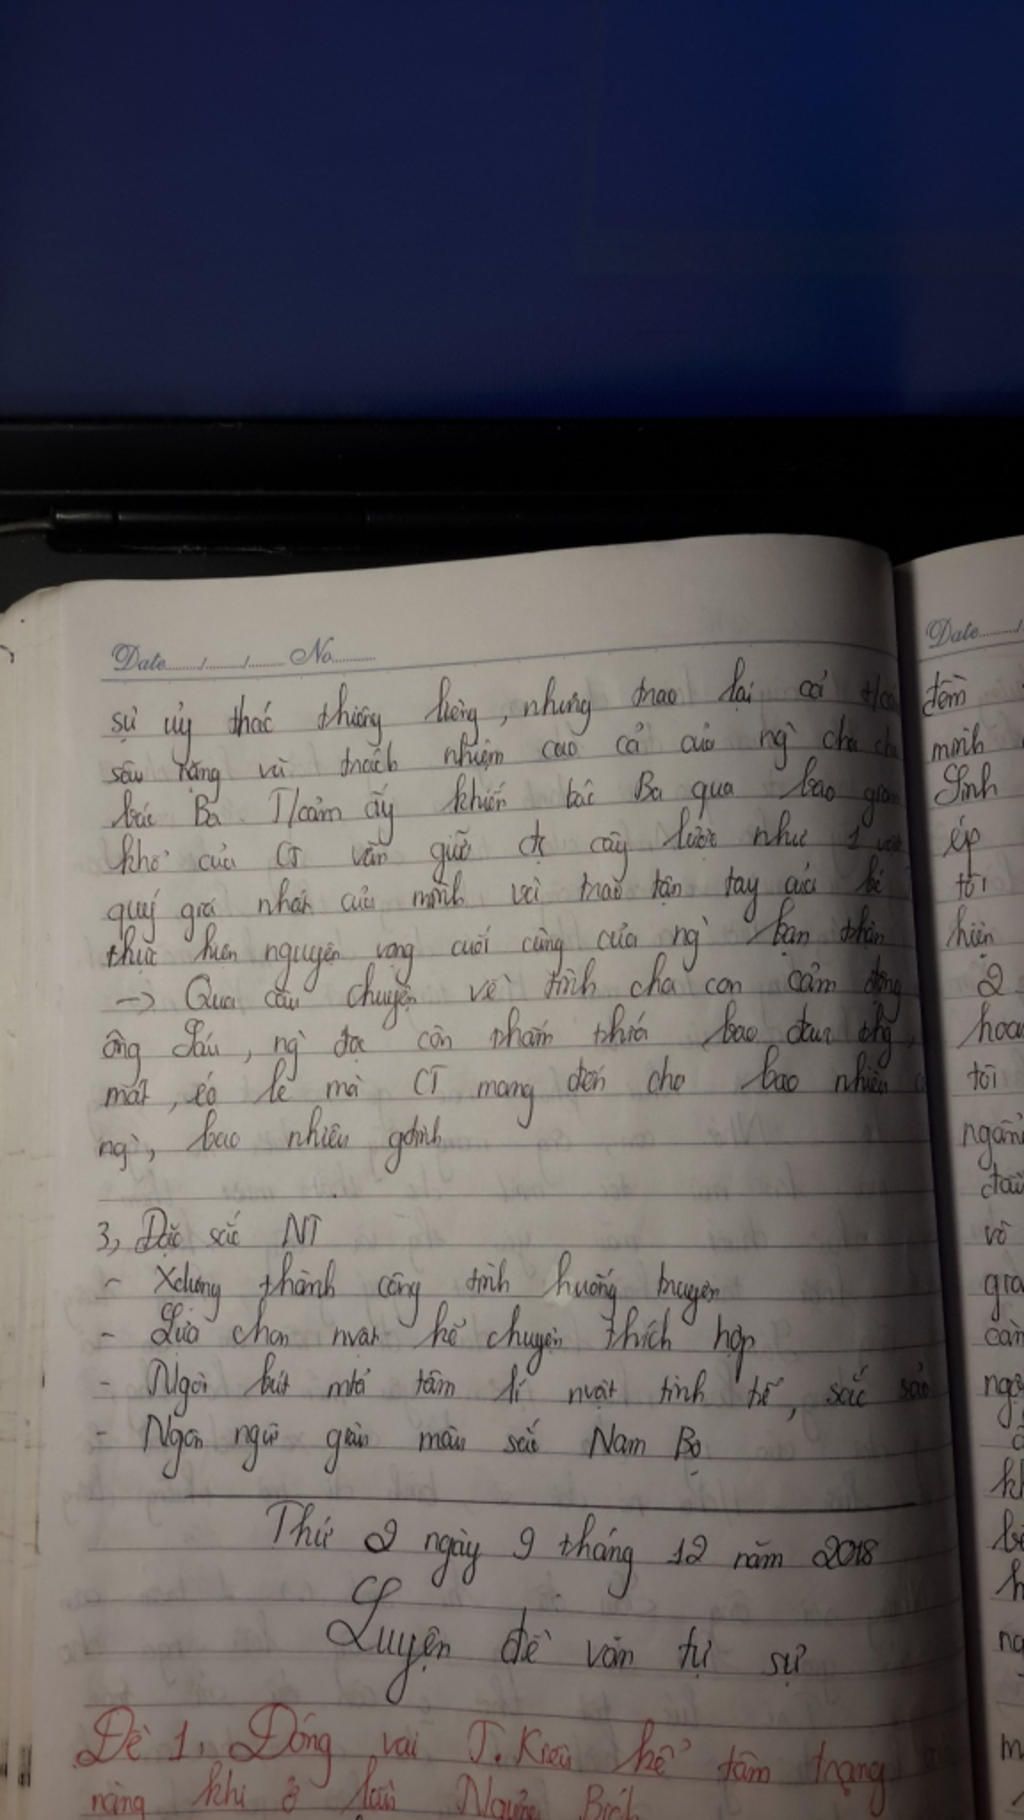 Date......./......./....... No..........
sự ủy thác thiêng liêng, nhưng trao lại cả t/cả
sâu nặng và trách nhiệm cao cả của ng` cha
bác Ba. T/cảm ấy khiến bác Ba qua bao gian
khổ của CT vẫn giữ cây lược như 1
quý giá nhất của mình và trao tận tay của bé
thực hiện nguyện vọng cuối cùng của ng` bạn thân
-> Qua câu chuyện về tình cha con cảm động
ông Sáu, ng` đọc còn thấm thía bao đau thg,
mất, éo le mà CT mang đến cho bao nhiêu
ng`, bao nhiêu gđình
3, Đặc sắc NT
- Xdựng thành công tình huống truyện
- Lựa chọn nvật kể chuyện thích hợp
- Ngòi bút mtả tâm lí nvật tinh tế, sắc sảo
- Ngôn ngữ giàu màu sắc Nam Bộ
Thứ 2 ngày 9 tháng 12 năm 2018
Luyện đề văn tự sự
Đề 1, Đóng vai T.Kiều kể tâm trạng
nàng khi ở lầu Ngưng Bích
Date......./
đêm
mình
Sinh
ép
tôi
hiện
2
hoa
tôi
ngẩn
đau
vô
gia
càn
ngo
kh
h
m